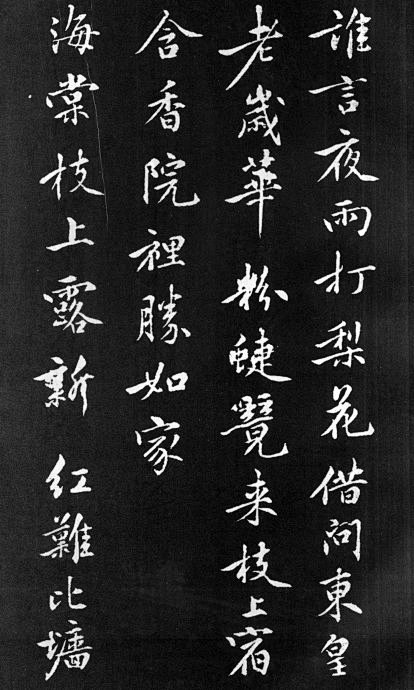 誰言夜雨打梨花借問東皇
老歲華 粉蜨来枝上宿
含香院裡勝如家
海棠枝上露新 紅難比墻